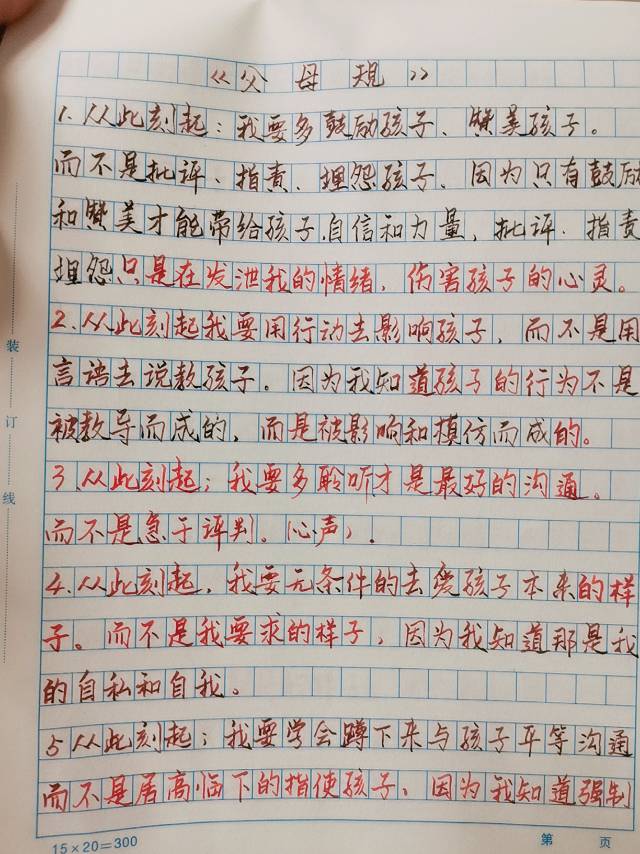 《父母规》
1.从此刻起：我要多鼓励孩子、赞美孩子。
而不是批评、指责、埋怨孩子。因为只有鼓励
和赞美才能带给孩子自信和力量，批评、指责
埋怨只是在发泄我的情绪，伤害孩子的心灵。
2.从此刻起我要用行动去影响孩子，而不是用
言语去说教孩子。因为我知道孩子的行为不是
被教导而成的，而是被影响和模仿而成的。
3.从此刻起；我要多聆听才是最好的沟通。
而不是急于评判。（心声）.
4.从此刻起，我要无条件的去爱孩子本来的样
子。而不是我要求的样子，因为我知道那是我
的自私和自我。
5从此刻起；我要学会蹲下来与孩子平等沟通
而不是居高临下的指使孩子、因为我知道强制
装
订
线
15×20=300
第 页